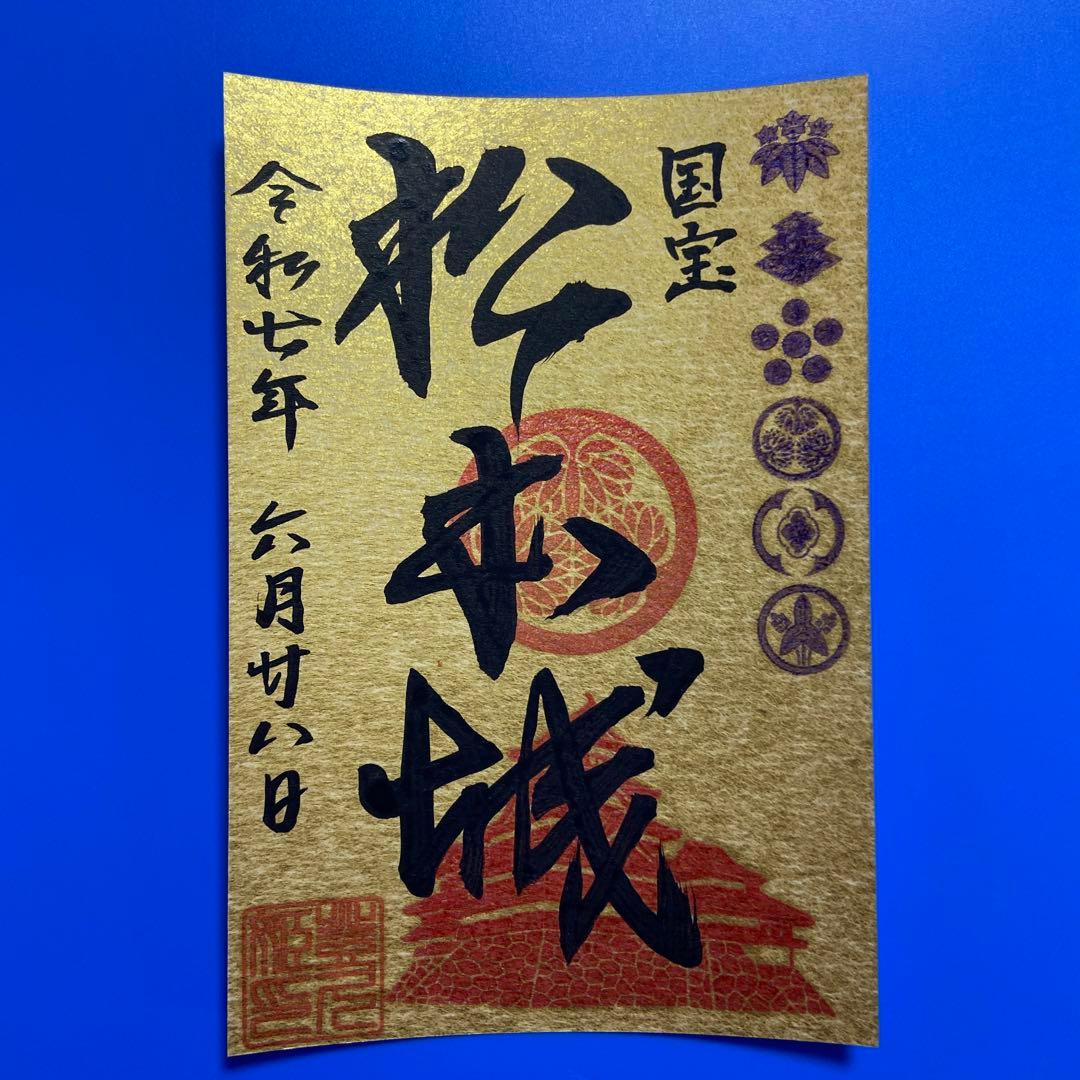 国宝
松本城
令和七年 六月廿八日